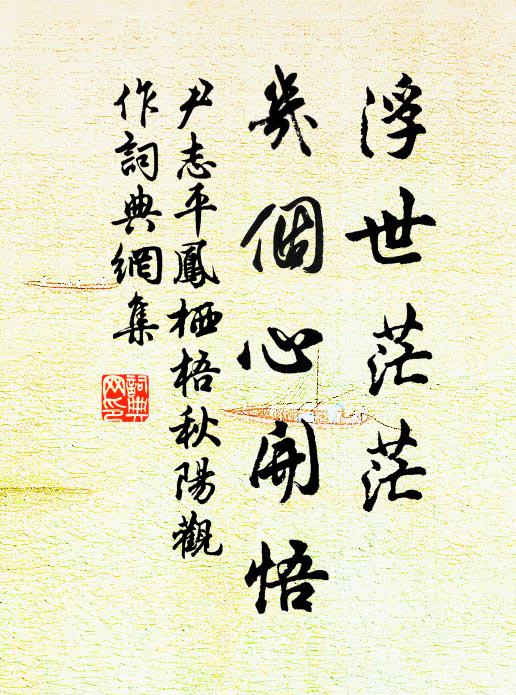 浮世茫茫
幾個心開悟
尹志平鳳栖梧秋陽觀
作詞典網集
詞典
网印